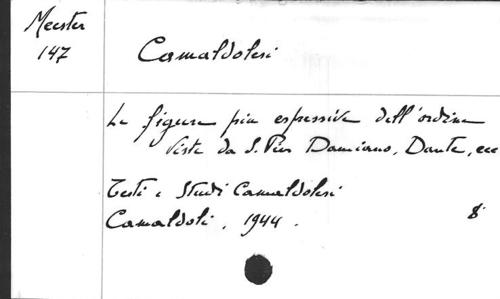 Meester
147
Camaldolesi
Le figure piu espressive dell'ordine
viste da S. Pier Damiano, Dante, ecc
Testi e Studi Camaldolesi
Camaldoli, 1944.
8°